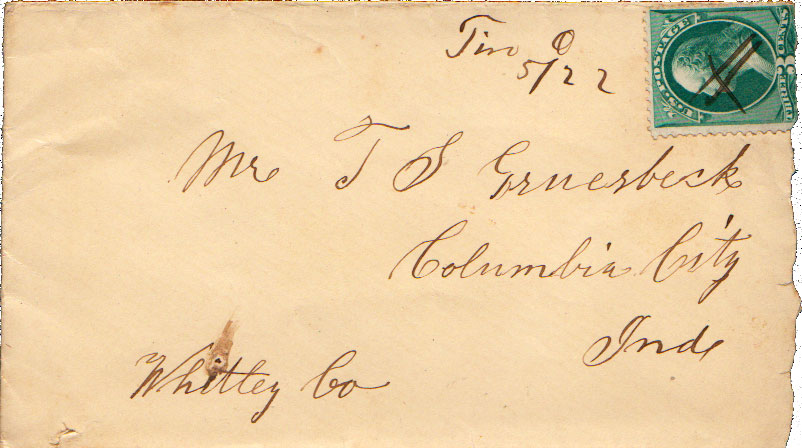 Tin O
5/22
U.S. POSTAGE
THREE CENTS
Mr T S Gruesbeck
Columbia City
Ind
Whitley Co